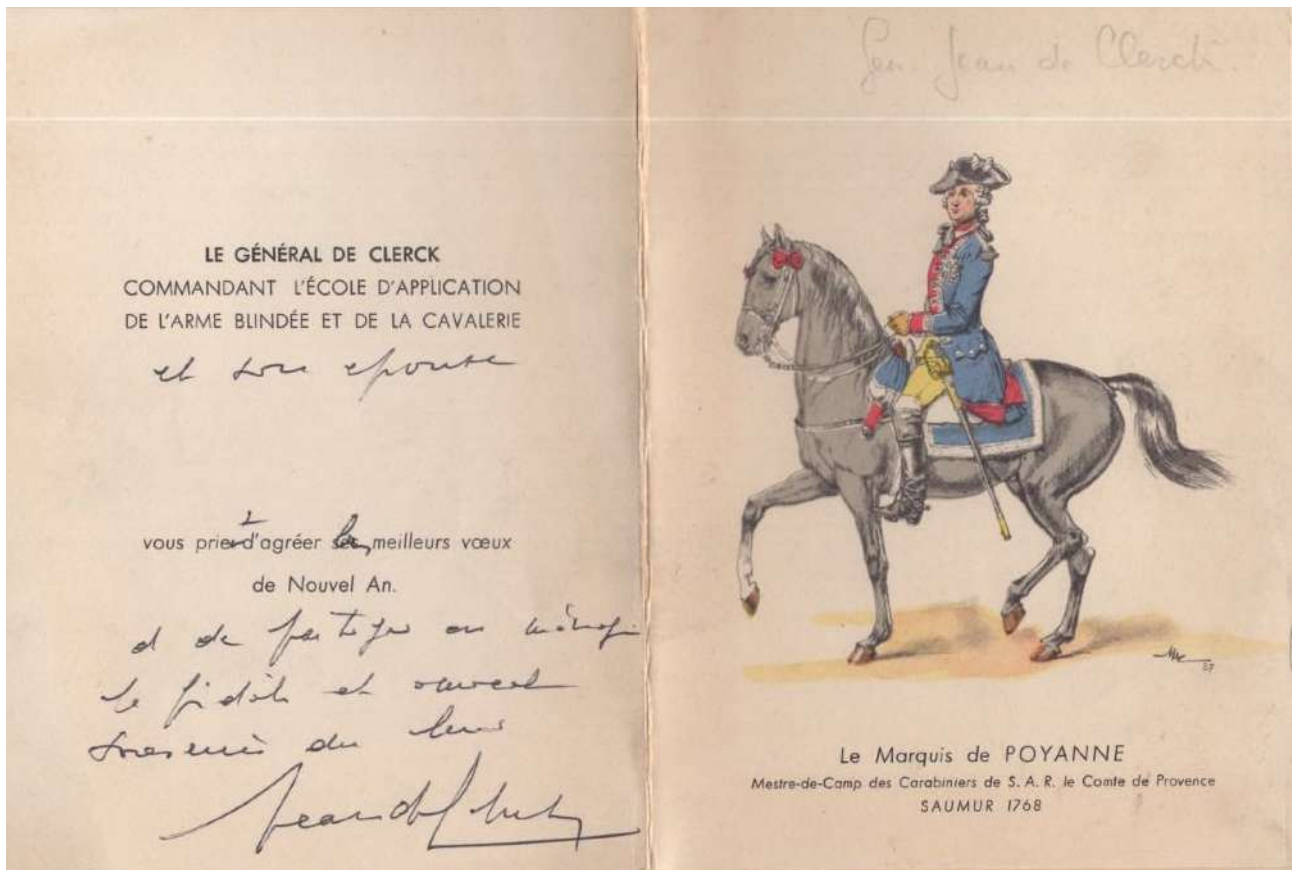 LE GÉNÉRAL DE CLERCK
COMMANDANT L'ÉCOLE D'APPLICATION
DE L'ARME BLINDÉE ET DE LA CAVALERIE
et son epouse
vous prient d'agréer les meilleurs vœux
de Nouvel An.
et de partager en
le fidèle et
souvenir du
Jean de Clerck
Gen. Jean de Clerck.
57
Le Marquis de POYANNE
Mestre-de-Camp des Carabiniers de S. A. R. le Comte de Provence
SAUMUR 1768